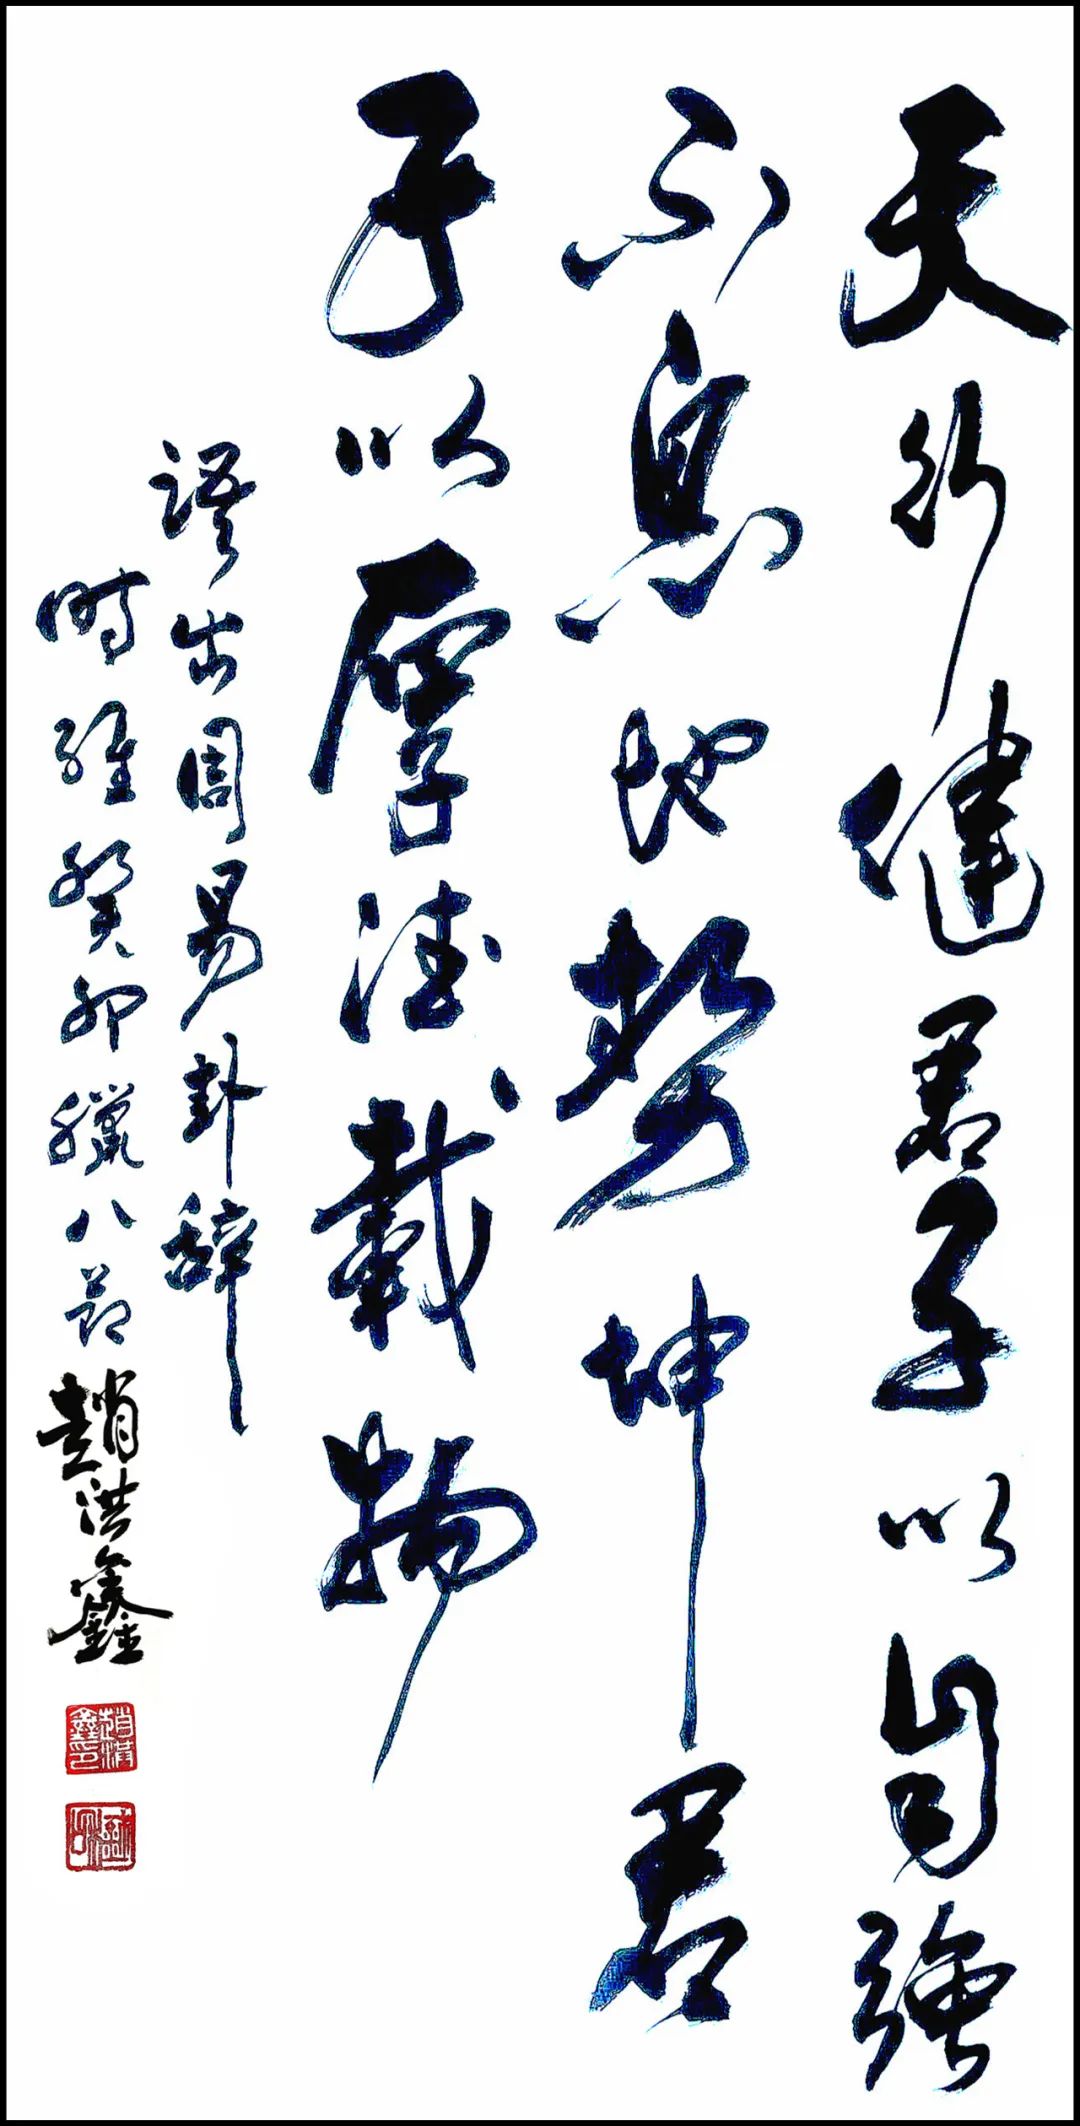 天行健君子以自強
不息地勢坤君
子以厚德載物
語出周易卦辭
時維癸卯臘八節趙洪鑫